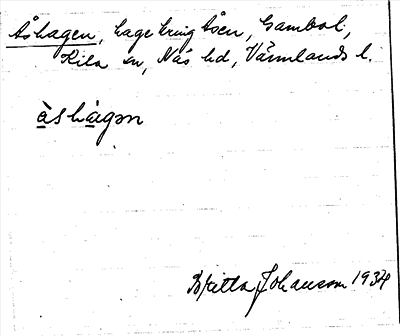 Åshagen, hage kring åsen, Gambol,
Kila sn, Näs hd, Värmlands l.
åshagən
Britta Johansson 1934